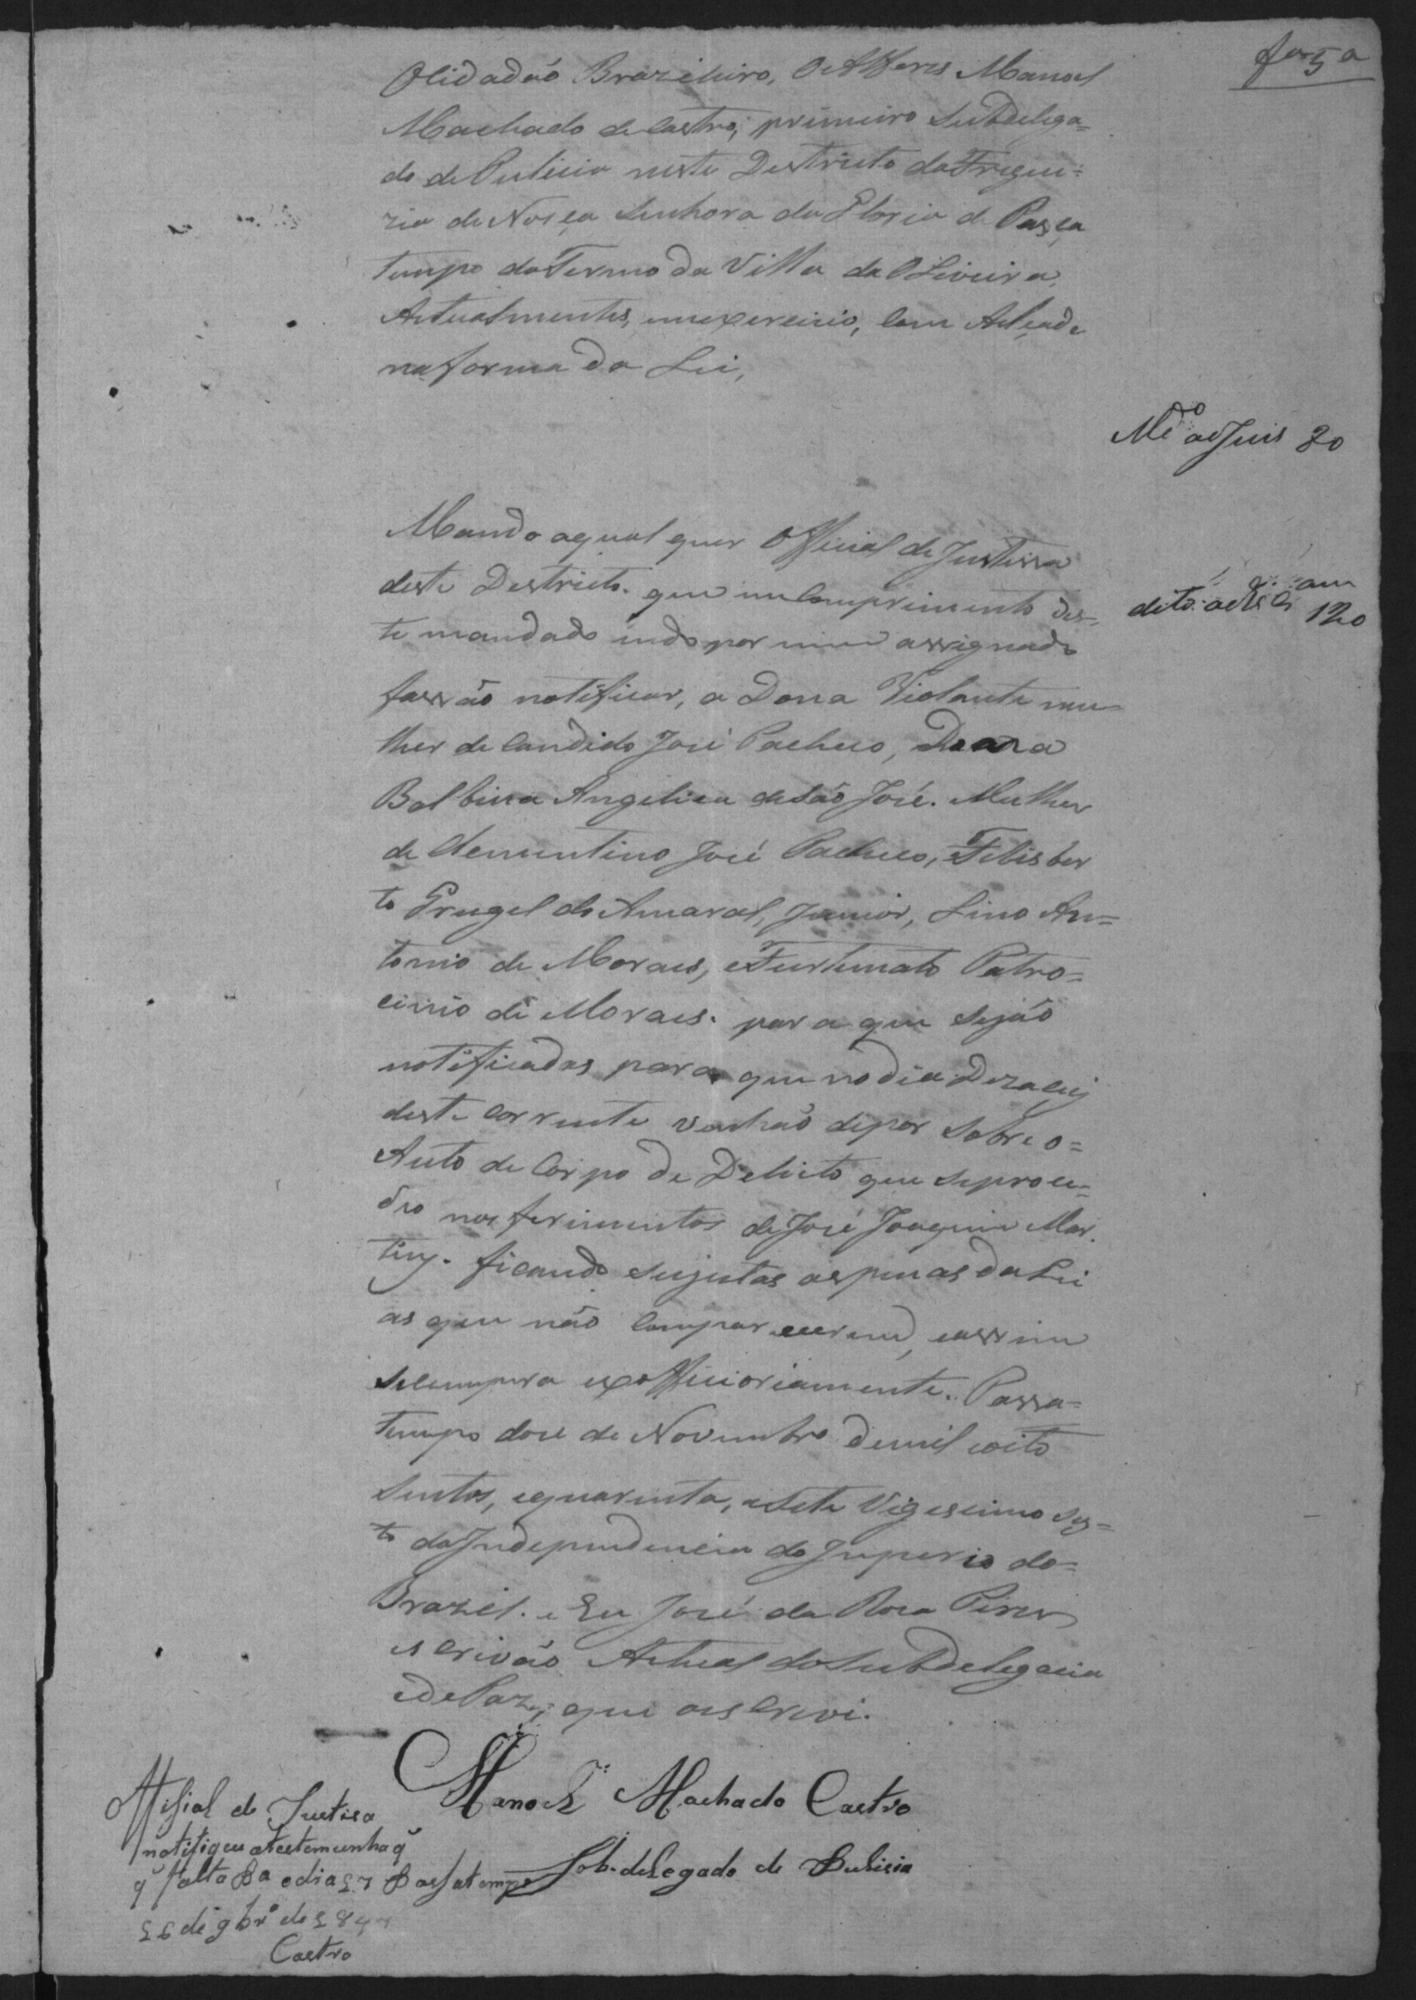 Ocidadão Brazileiro, O Alferes Manoel
Machado de Castro, primeiro SubDeliga=
do de Pulicia neste Destricto da Fregui=
zia de Nosça Senhora da Gloria de Pasça
tempo do Termo da Villa da Oliveira,
Actualmentes, em exercicio, Com Alçade
na forma da Lei,
Mando aqual quer Official de Justissa
deste Destricto. que em Comprimento des=
te mandado indo por mim assignado
fassão notificar, a Dona Violante mu
lher de Candido José Pacheco, Dona
Balbina Angelica de São José. Mulher
de Clementino José Pacheco, Felisber
to Gregel do Amaral, Junior, Lino An=
tonio de Moraes, e Furtunato Patro=
cinio de Moraes. para que sejão
notificadas para que no dia Dezaceis
deste corrente venhão depor sobre o=
Auto de Corpo de Delicto que seproce=
deo nos ferimentos de José Joaquim Mar
tins. ficando sujeitas as penas da Lei
as que não Comparecerem, e assim
secumpra exofficioriamente. Passa=
tempo doze de Novembro de mil e oito
sentos, e quarenta, e Sete Vigescimo Seis=
to da Independencia do Imperio do=
Brazil. e Eu José da Roza Pires
escrivão Actual do SubDelegacia
e de Paz, que o escrevi.
Manoel Machado Castro
Sob. delegado de Pulicia
fa 5 a
Mdo ao Juis 80
dito ao
120
Offisial de Justisa
notifique atestemunha q̃
q̃ falta pa o dia 27 Passatempo
26 de 9brº de 1847
Castro